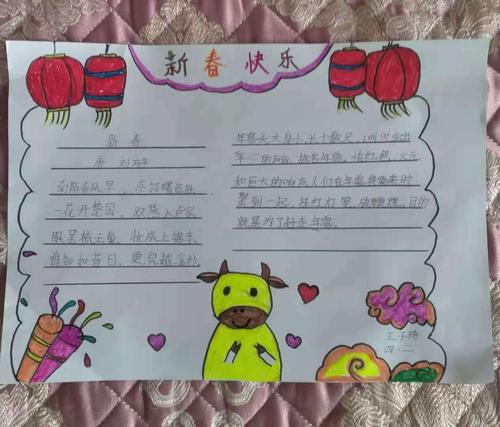 新春快乐
新春
唐 刘方平
南陌春风早，东邻曙色斜
一花开楚国，双燕入卢家
眠罢梳云髻，妆成上锦车
谁知如昔日，更浣越溪纱
年兽头大身小，长十数尺，
年"的声音，故名年兽，怕红色，火光
和巨大的响声人们在年兽将要来时
聚到一起，挂红灯笼，放鞭炮，目的
就是为了赶走年兽。
四·二